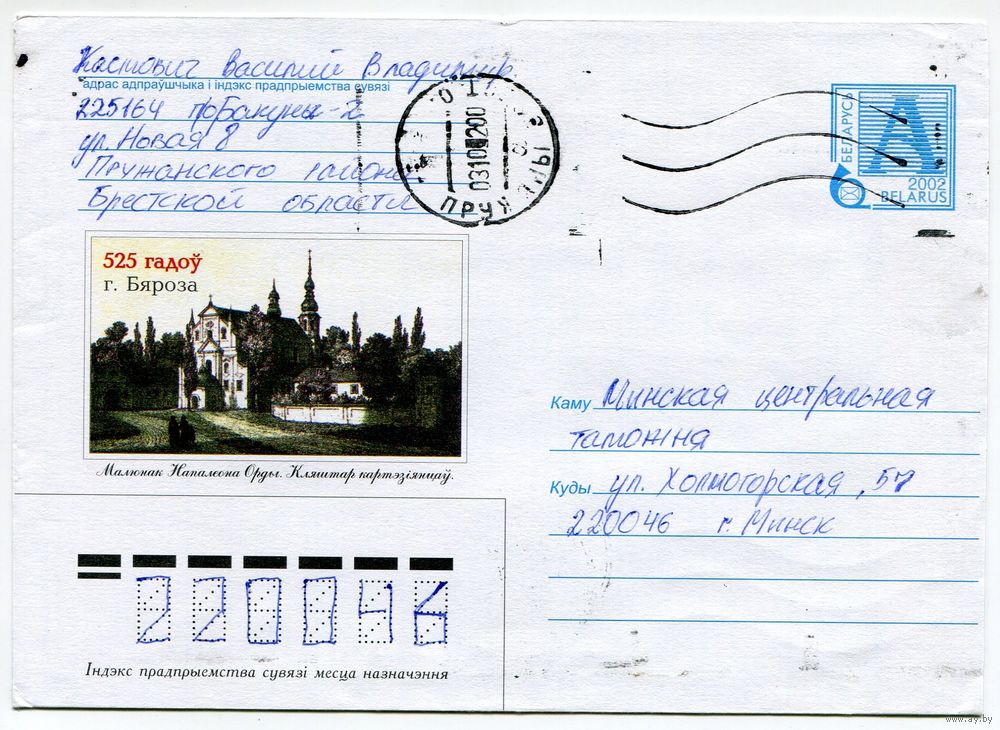 Костович Василий Владимир
адрас адпраўшчыка і індэкс прадпрыемства сувязі
225164 п/о Бакуны-2
ул. Новая 8
Пружанского района
Брестской области
ПРУЖ
БЕЛАРУСЬ
A
2002
BELARUS
525 гадоў
г. Бяроза
Малюнак Напалеона Орды. Кляштар картэзіянцаў.
Каму Минская центральная
таможня
Куды ул. Холмогорская, 57
220046 г. Минск
220046
Індэкс прадпрыемства сувязі месца назначэння
www.ay.by